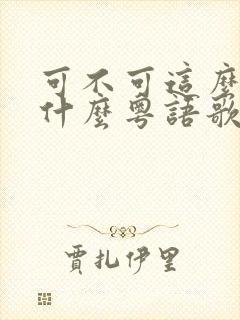 可不可這麼
什麼粵語歌
賈扎伊里